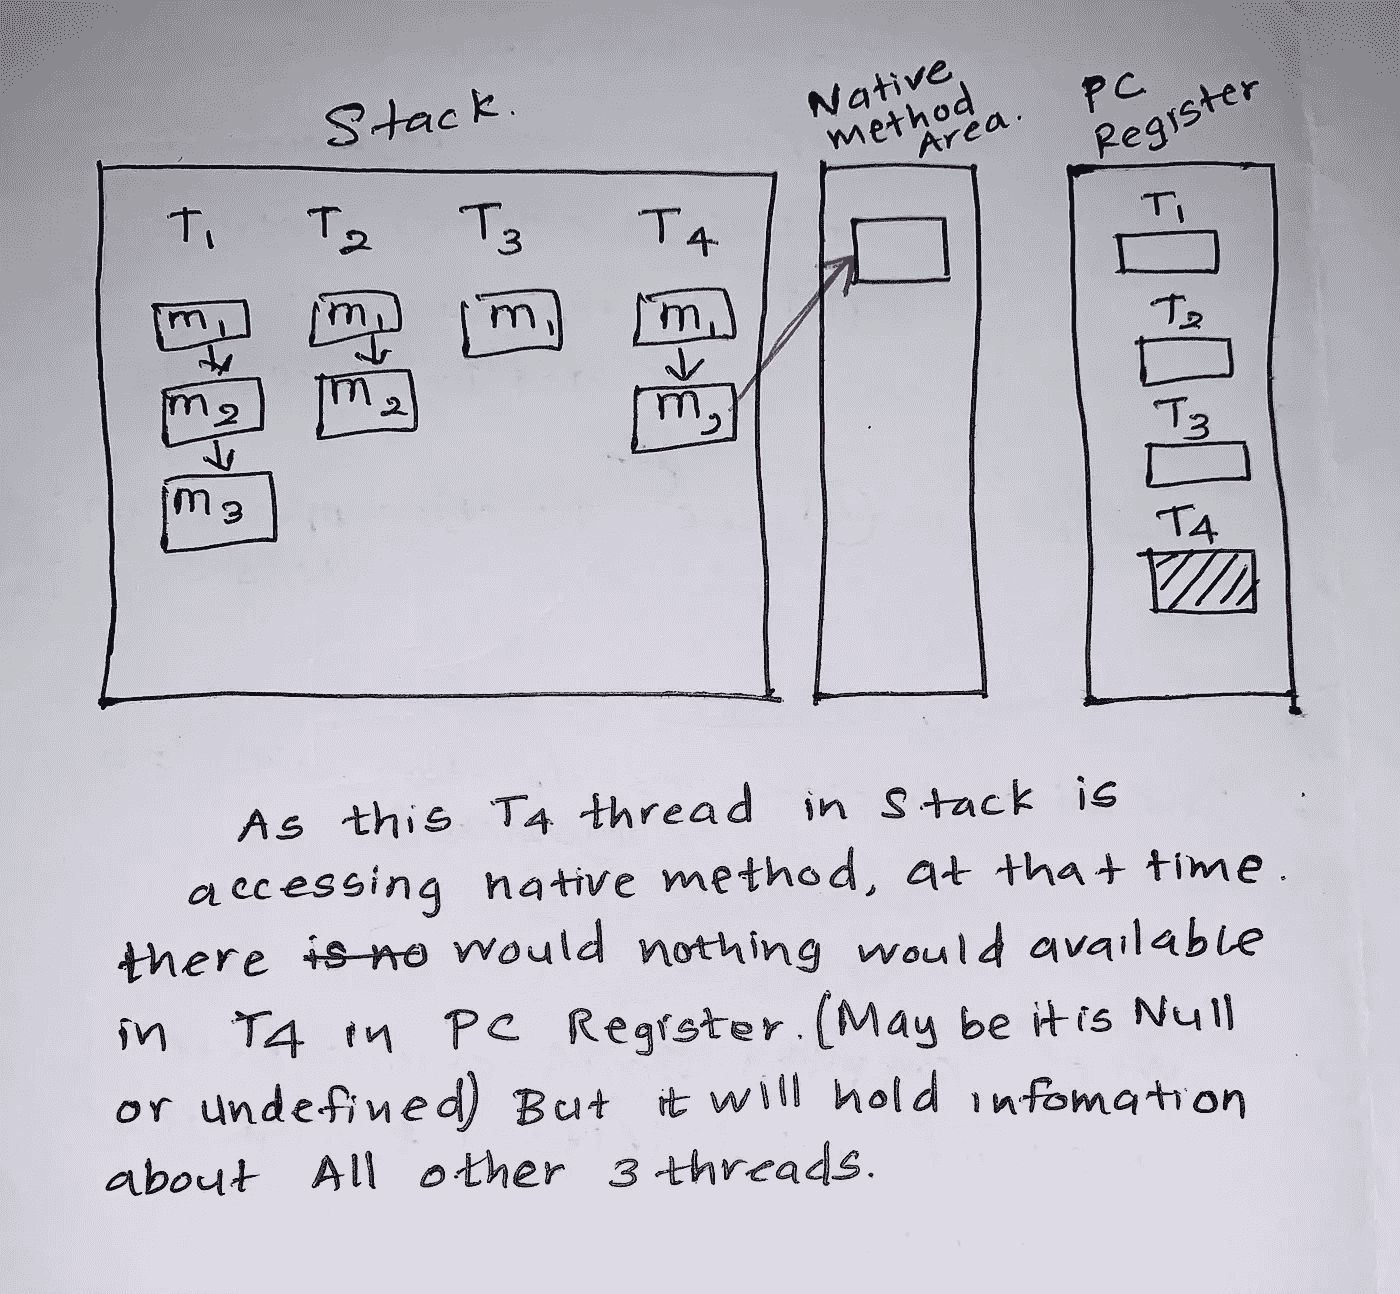 Stack.
Native
method
Area.
PC
Register
T1
T2
T3
T4
m1
m1
m1
m1
m2
m2
m2
m3
T1
T2
T3
T4
As this T4 thread in Stack is
accessing native method, at that time.
there is no would nothing would available
in T4 in PC Register. (May be it is Null
or undefined) But it will hold infomation
about All other 3 threads.